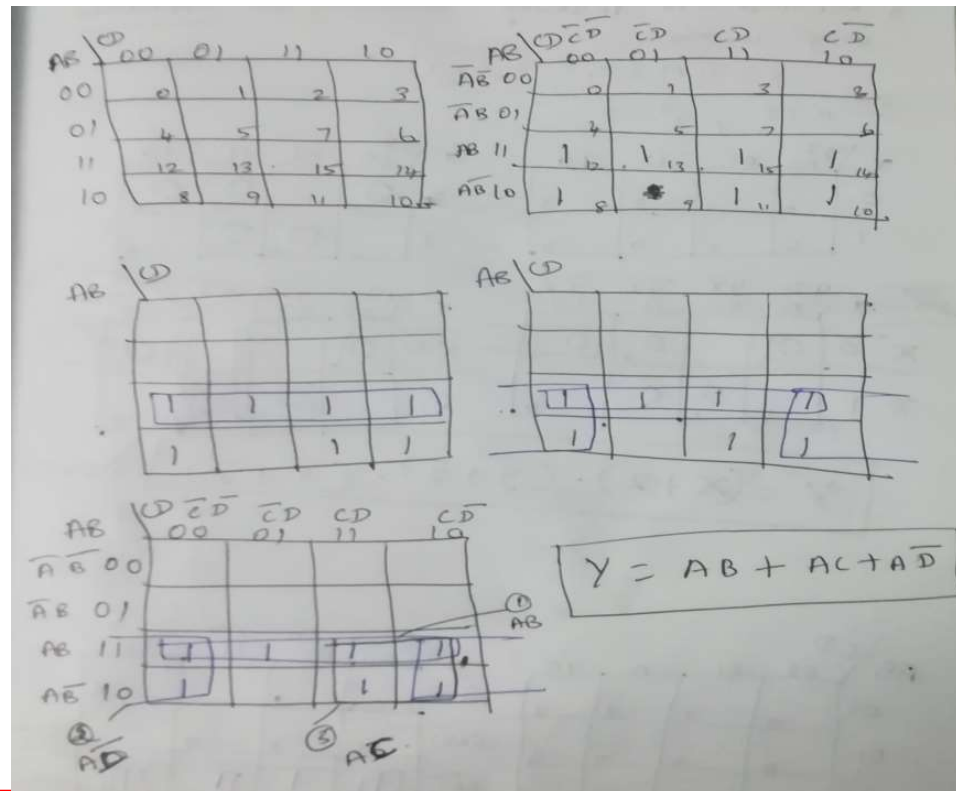 AB \ CD 00 01 11 10
00 0 1 2 3
01 4 5 7 6
11 12 13 15 14
10 8 9 11 10
AB \ CD C̅D̅ C̅D CD CD̅
00 01 11 10
A̅B̅ 00 0 1 3 2
A̅B 01 4 5 7 6
AB 11 1 12 1 13 1 15 1 14
AB̅ 10 1 8 9 1 11 1 10
AB \ CD
1 1 1 1
1 1 1
AB \ CD
1 1 1 1
1 1 1
AB \ CD C̅D̅ C̅D CD CD̅
00 01 11 10
A̅B̅ 00
A̅B 01
AB 11 1 1 1 1
AB̅ 10 1 1 1
① AB
② AD̅
③ AC
Y = AB + AC + AD̅